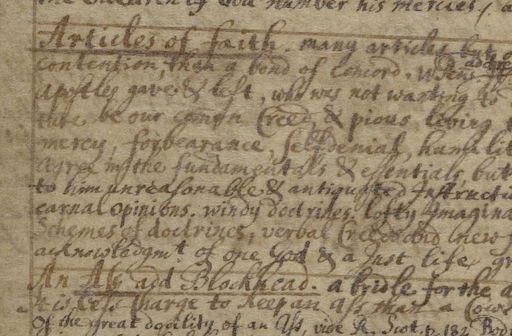 his mercies
Articles of faith. many articles but
contention, than a bond of Concord.
Apostles gave & left, who was not wanting to
ture. be our comon Creed & pious living
mercy, forbearance, selfdenial, humilit
agree in the fundamentals & essentials, but
to him unreasonable & antiquated Instructi
carnal opinions. windy doctrines. lofty Imagina
Schemes of doctrines, verbal Creeds and new
acknowledgmt. of one God & a Just life,
An Ass and Blockhead. a bridle for the a
his less Charge to Keep an Ass than a Cow
Of the great docility of an Ass, vide R. Scot. p. 182